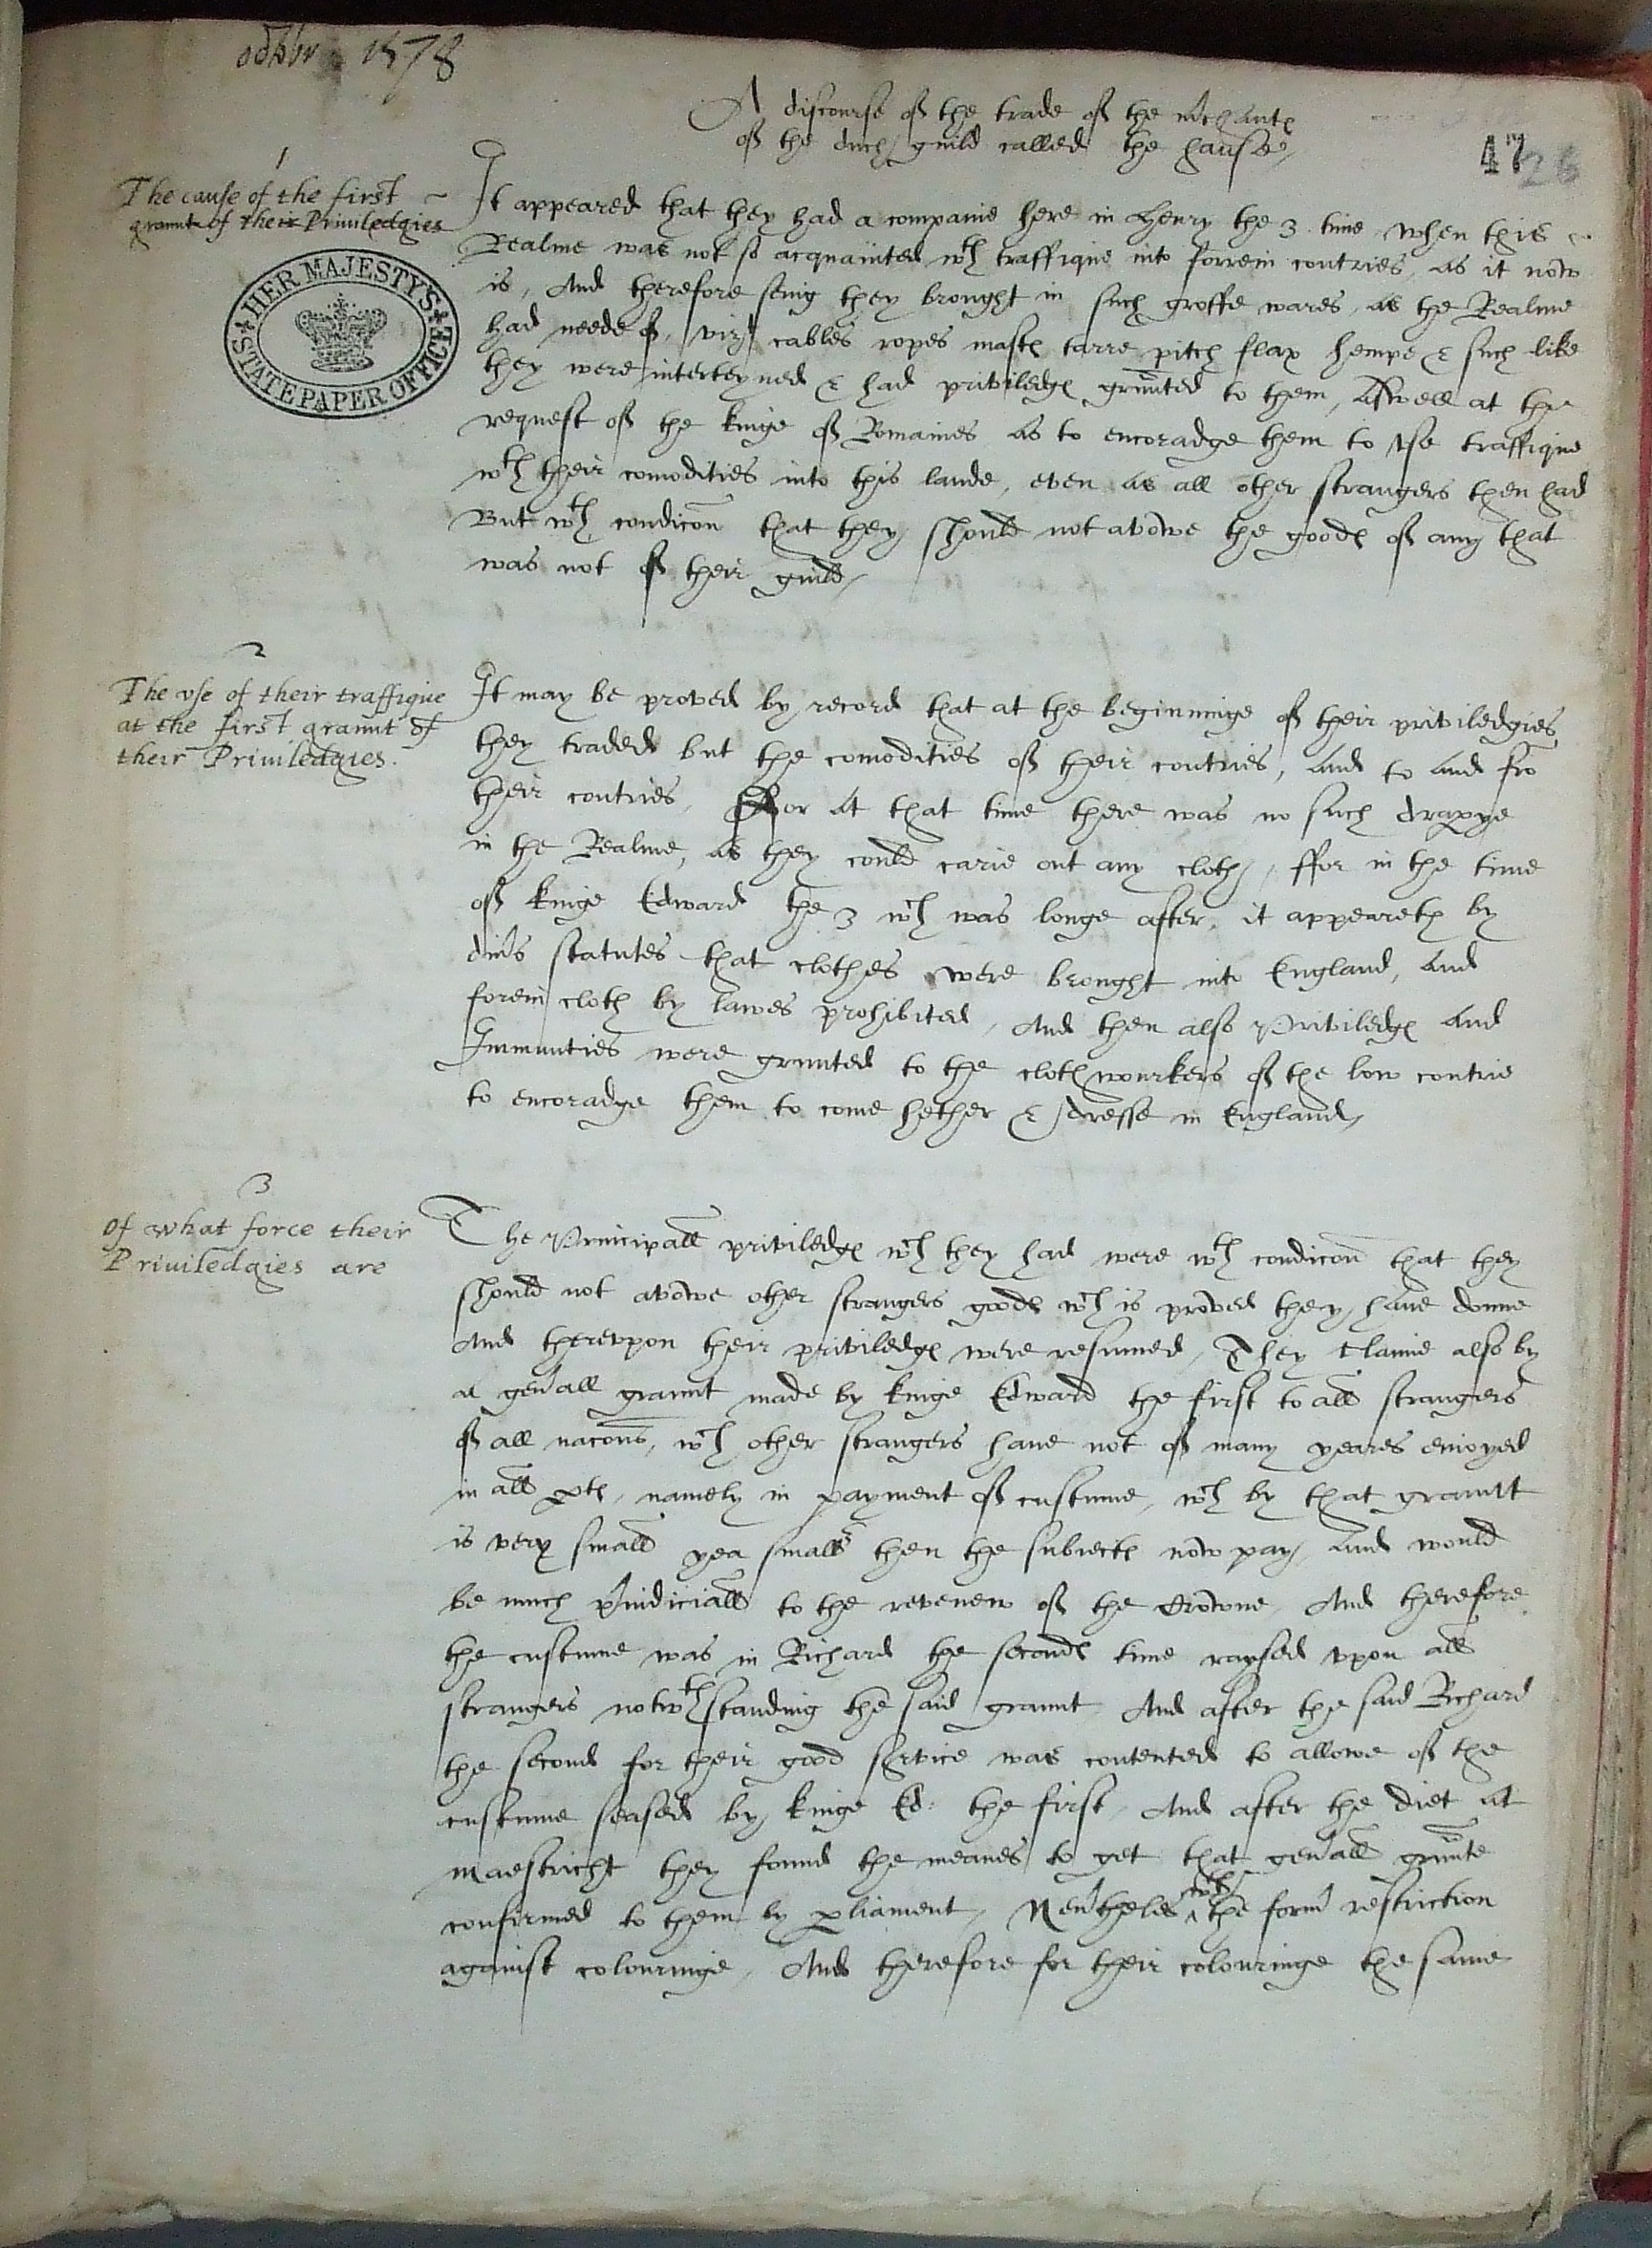 octobr 1578
A discourse of the trade of the mchants
of the duch guild called the hause
47
26
1
The cause of the first
graunt of their Priuiledgies
HER MAJESTY'S
STATE PAPER OFFICE
It appeared that they had a companie here in Henry the 3 time when this
Realme was not so acquainted wth traffique into forrein contries, as it now
is, And therefore seing they brought in such grosse wares, as the Realme
had neede of, vizt cables ropes masts tarre pitch flax hempe & such like
they were interteyned & had priviledgs graunted to them, Aswell at the
request of the kinge of Romaines as to encoradge them to vse traffique
wth their comodities into this lande, even as all other strangers then had
But wth condicon that they should not avowe the goods of any that
was not of their guild
2
The vse of their traffique
at the first graunt of
their Priuiledgies.
It may be proved by record that at the beginninge of their priviledgies
they traded but the comodities of their contries, and to and fro
their contries, ffor at that time there was no such drapye
in the Realme, as they could carie out any cloth, ffor in the time
of kinge Edward the 3 wch was longe after, it appeareth by
divs statutes that clothes were brought into England, and
forein cloth by lawes prohibited, And then also Priviledgs and
Immunties were grunted to the clothwourkers of the low contrie
to encoradge them to come hether & dresse in England
3
Of what force their
Priuiledgies are
The Principall priviledgs wch they had were wth condicon that they
should not avowe other strangers goods wch is proved they have donne
And therevpon their priviledgs were resumed, They claime also by
a genall graunt made by kinge Edward the first to all strangers
of all nacons, wch other strangers have not of many yeares enioyed
in all pts, namely in payment of custume, wch by that graunt
is very small yea smallr then the subiects now pay, and would
be much piudiciall to the revenew of the Crowne, And therefore
the custume was in Richard the seconds time raysed vpon all
strangers notwthstanding the said graunt And after the said Richard
the second for their good service was contented to allowe of the
custume seased by kinge Ed: the first, And after the diet at
Maestricht they found the meanes to get that genall graunte
confirmed to them by pliament, Nevtheles wth the form restriction
against colouringe, And therefore for their colouringe the same